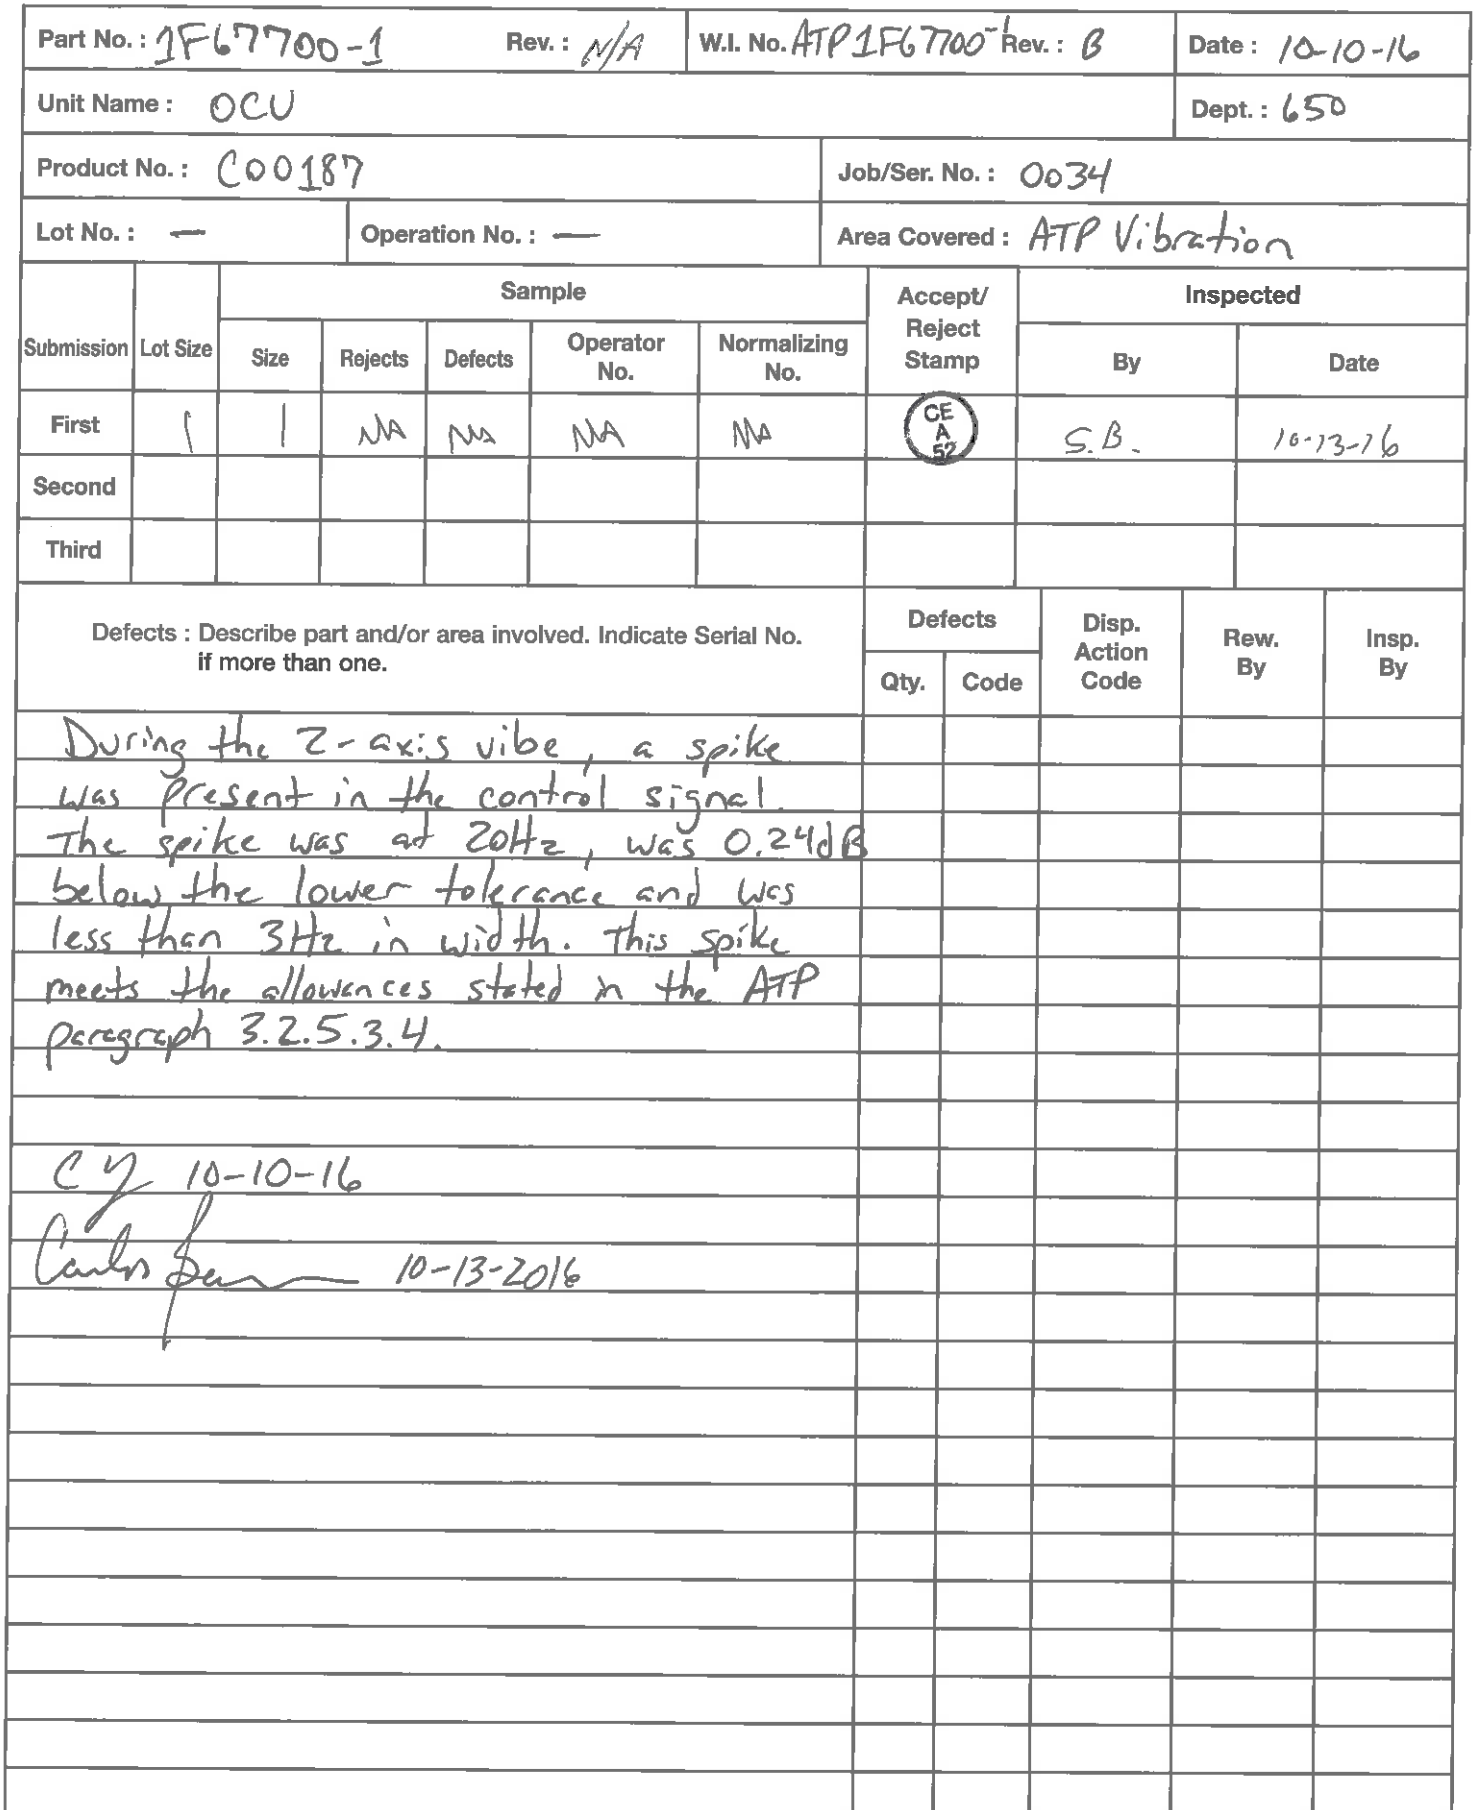 Part No. : 1F67700-1 Rev. : N/A W.I. No. ATP1F67700-1 Rev. : B Date : 10-10-16
Unit Name : OCU Dept. : 650
Product No. : C00187 Job/Ser. No. : 0034
Lot No. : — Operation No. : — Area Covered : ATP Vibration
Submission Lot Size Sample Accept/ Reject Stamp Inspected
Size Rejects Defects Operator No. Normalizing No. By Date
First 1 1 NA NA NA NA CE A 52 S.B. 10-13-16
Second
Third
Defects : Describe part and/or area involved. Indicate Serial No.
if more than one.
Defects Disp. Action Code Rew. By Insp. By
Qty. Code
During the Z-axis vibe, a spike
was present in the control signal.
The spike was at 20Hz, was 0.24dB
below the lower tolerance and was
less than 3Hz in width. This spike
meets the allowances stated in the ATP
paragraph 3.2.5.3.4.
CY 10-10-16
Carlos 10-13-2016